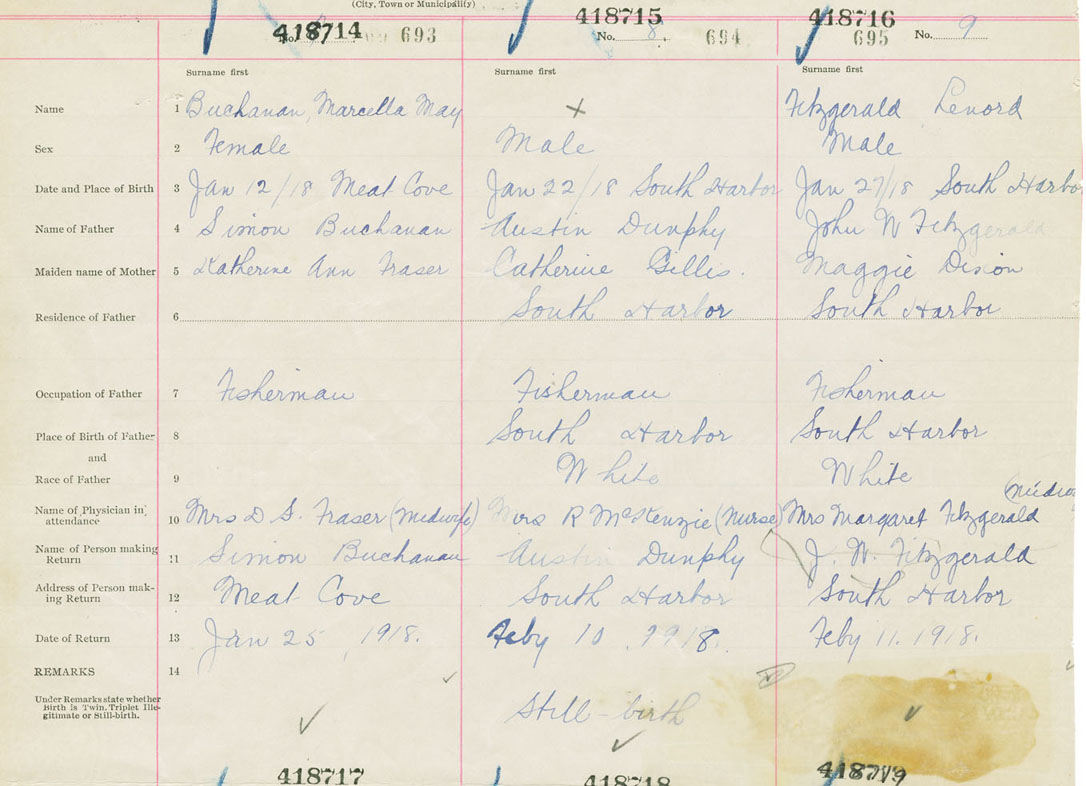 (City, Town or Municipality)
418714 418715 418716
No. 693 No. 8 694 695 No. 9
Surname first Surname first Surname first
Name 1 Buchanan, Marcella May X Fitzgerald Lenord
Sex 2 Female Male Male
Date and Place of Birth 3 Jan 12/18 Meat Cove Jan 22/18 South Harbor Jan 27/18 South Harbor
Name of Father 4 Simon Buchanan Austin Dunphy John W Fitzgerald
Maiden name of Mother 5 Katherine Ann Fraser Catherine Gillis. Maggie Dixon
Residence of Father 6 South Harbor South Harbor
Occupation of Father 7 Fisherman Fisherman Fisherman
Place of Birth of Father 8 South Harbor South Harbor
and
Race of Father 9 White White
Name of Physician in attendance 10 Mrs D S. Fraser (Midwife) Mrs R McKenzie (Nurse) Mrs Margaret Fitzgerald
Name of Person making Return 11 Simon Buchanan Austin Dunphy J. W. Fitzgerald
Address of Person making Return 12 Meat Cove South Harbor South Harbor
Date of Return 13 Jan 25 1918. Feby 10 1918. Feby 11. 1918.
REMARKS 14
Under Remarks state whether
Birth is Twin, Triplet Ille-
gitimate or Still-birth.
Still-birth
418717 418718 418719